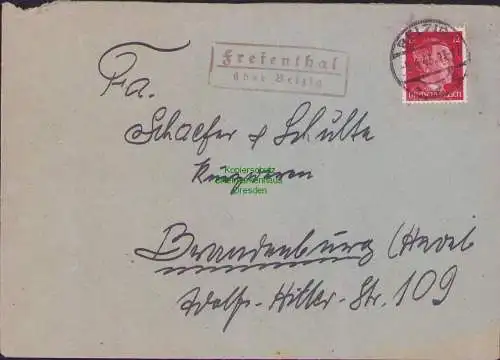 Freienthal
über Belzig
BELZIG
12
Deutsches Reich
Fa.
Schaefer & Schulte
Kurzwaren
Kopierschutz
Dresden
Brandenburg (Havel
Adolf-Hitler-Str. 109